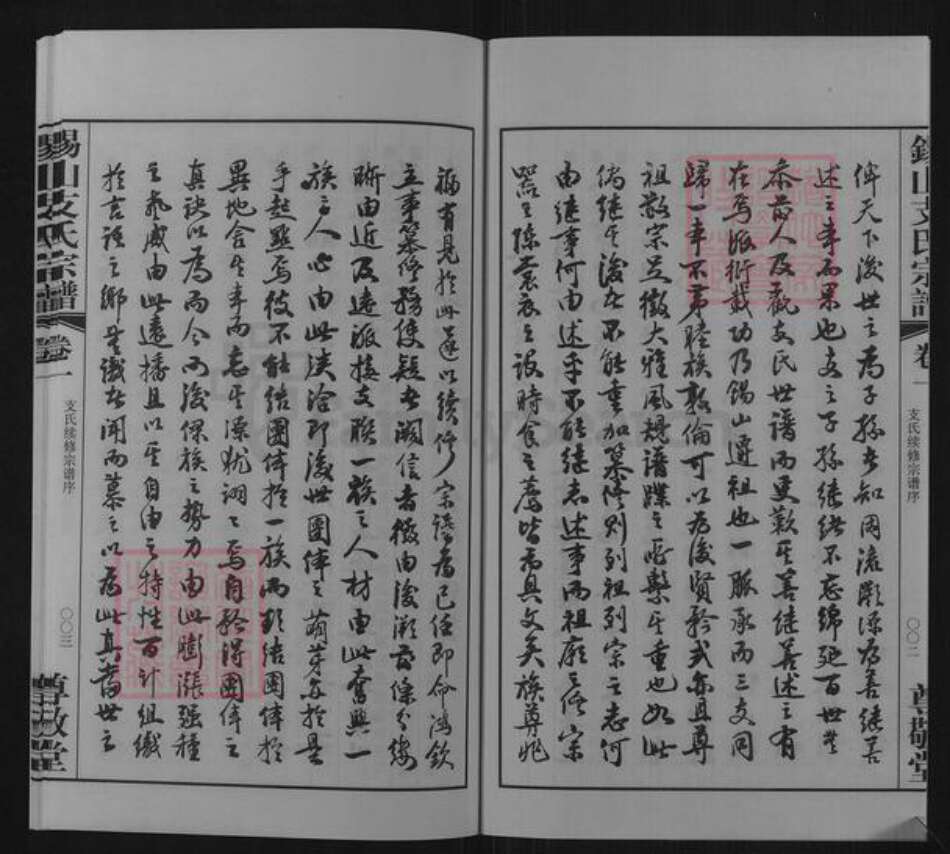 錫山支氏宗譜
卷一
支氏续修宗谱序
〇〇二
尊敬堂
俾天下後世之為子孫者知同流溯源為善繼善
述之事而累也支之子孫繼緒不忘綿延百世
忝前人及觀支氏世譜而更歎其善繼善述之有
在焉派衍載功乃錫山遷祖也一脈承而三支同
歸一本不弟睦族敦倫可以為後賢矜式亦且尊
祖敬宗足徵大雅風規譜牒之所繫其重也如此
倘繼其後者不能重加纂修則列祖列宗之志何
由繼事何由述乎不能繼志述事而祖廟之修宗
器之陳裳衣之設時食之薦皆為具文矣族尊兆
福有見於此遂以續修宗譜為己任即命鴻欽
主事纂修務使疑者闕信者徵由後溯前條分縷
晰由近及遠派接支聯一族之人材由此奮興一
族之人心由此浹洽即後世團体之萌芽亦於是
乎起點焉彼不能結團体於一族而欲結團体於
異地含其本而忘其源猶詡詡焉自矜得團体之
真訣以為而今而後倮族之勢力由此膨漲強種
之氣威由此遠播且以其自由之特性百計組織
於言語之鄉 織者聞而慕之以為此真舊世之
錫山支氏宗譜
卷一
支氏续修宗谱序
〇〇三
尊敬堂